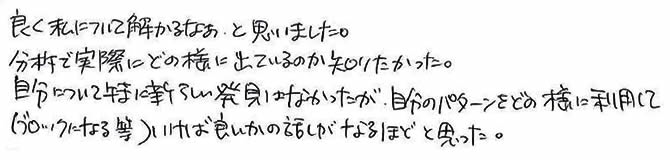 良く私について解かるなぁ、と思いました。
分析で実際にどの様に出ているのか知りたかった。
自分について特に新らしい発見はなかったが、自分のパターンをどの様に利用して
(ブロックになる等)いけば良いかの話しがなるほどと思った。